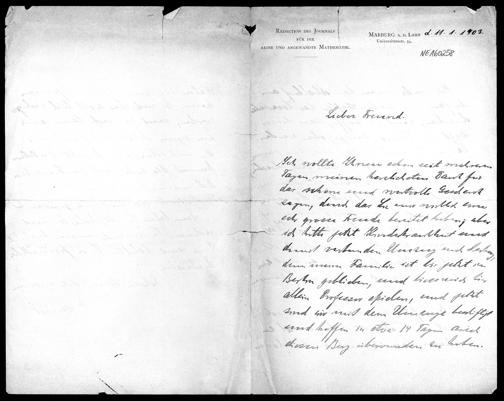 REDACTION DES JOURNALS
FÜR DIE
REINE UND ANGEWANDTE MATHEMATIK.
MARBURG A. D. LAHN d 11. 1. 1902.
Universitätsstr. 54.
Lieber Freund.
Ich wollte Ihnen schon seit mehreren
Tagen meinen herzlichsten Dank für
das schöne und wertvolle Geschenk
sagen, durch das Sie uns wirklich eine
so grosse Freude bereitet haben, aber
ich hatte jetzt Kinderkrankheit und
damit verbunden Umzug nach
denn meine Familie ist bis jetzt in
Berlin geblieben, und
allein Professor spielen, und jetzt
sind wir mit dem Umzuge beschäftigt
und hoffen in etwa 14 Tagen auch
diesen Berg überwunden zu haben.